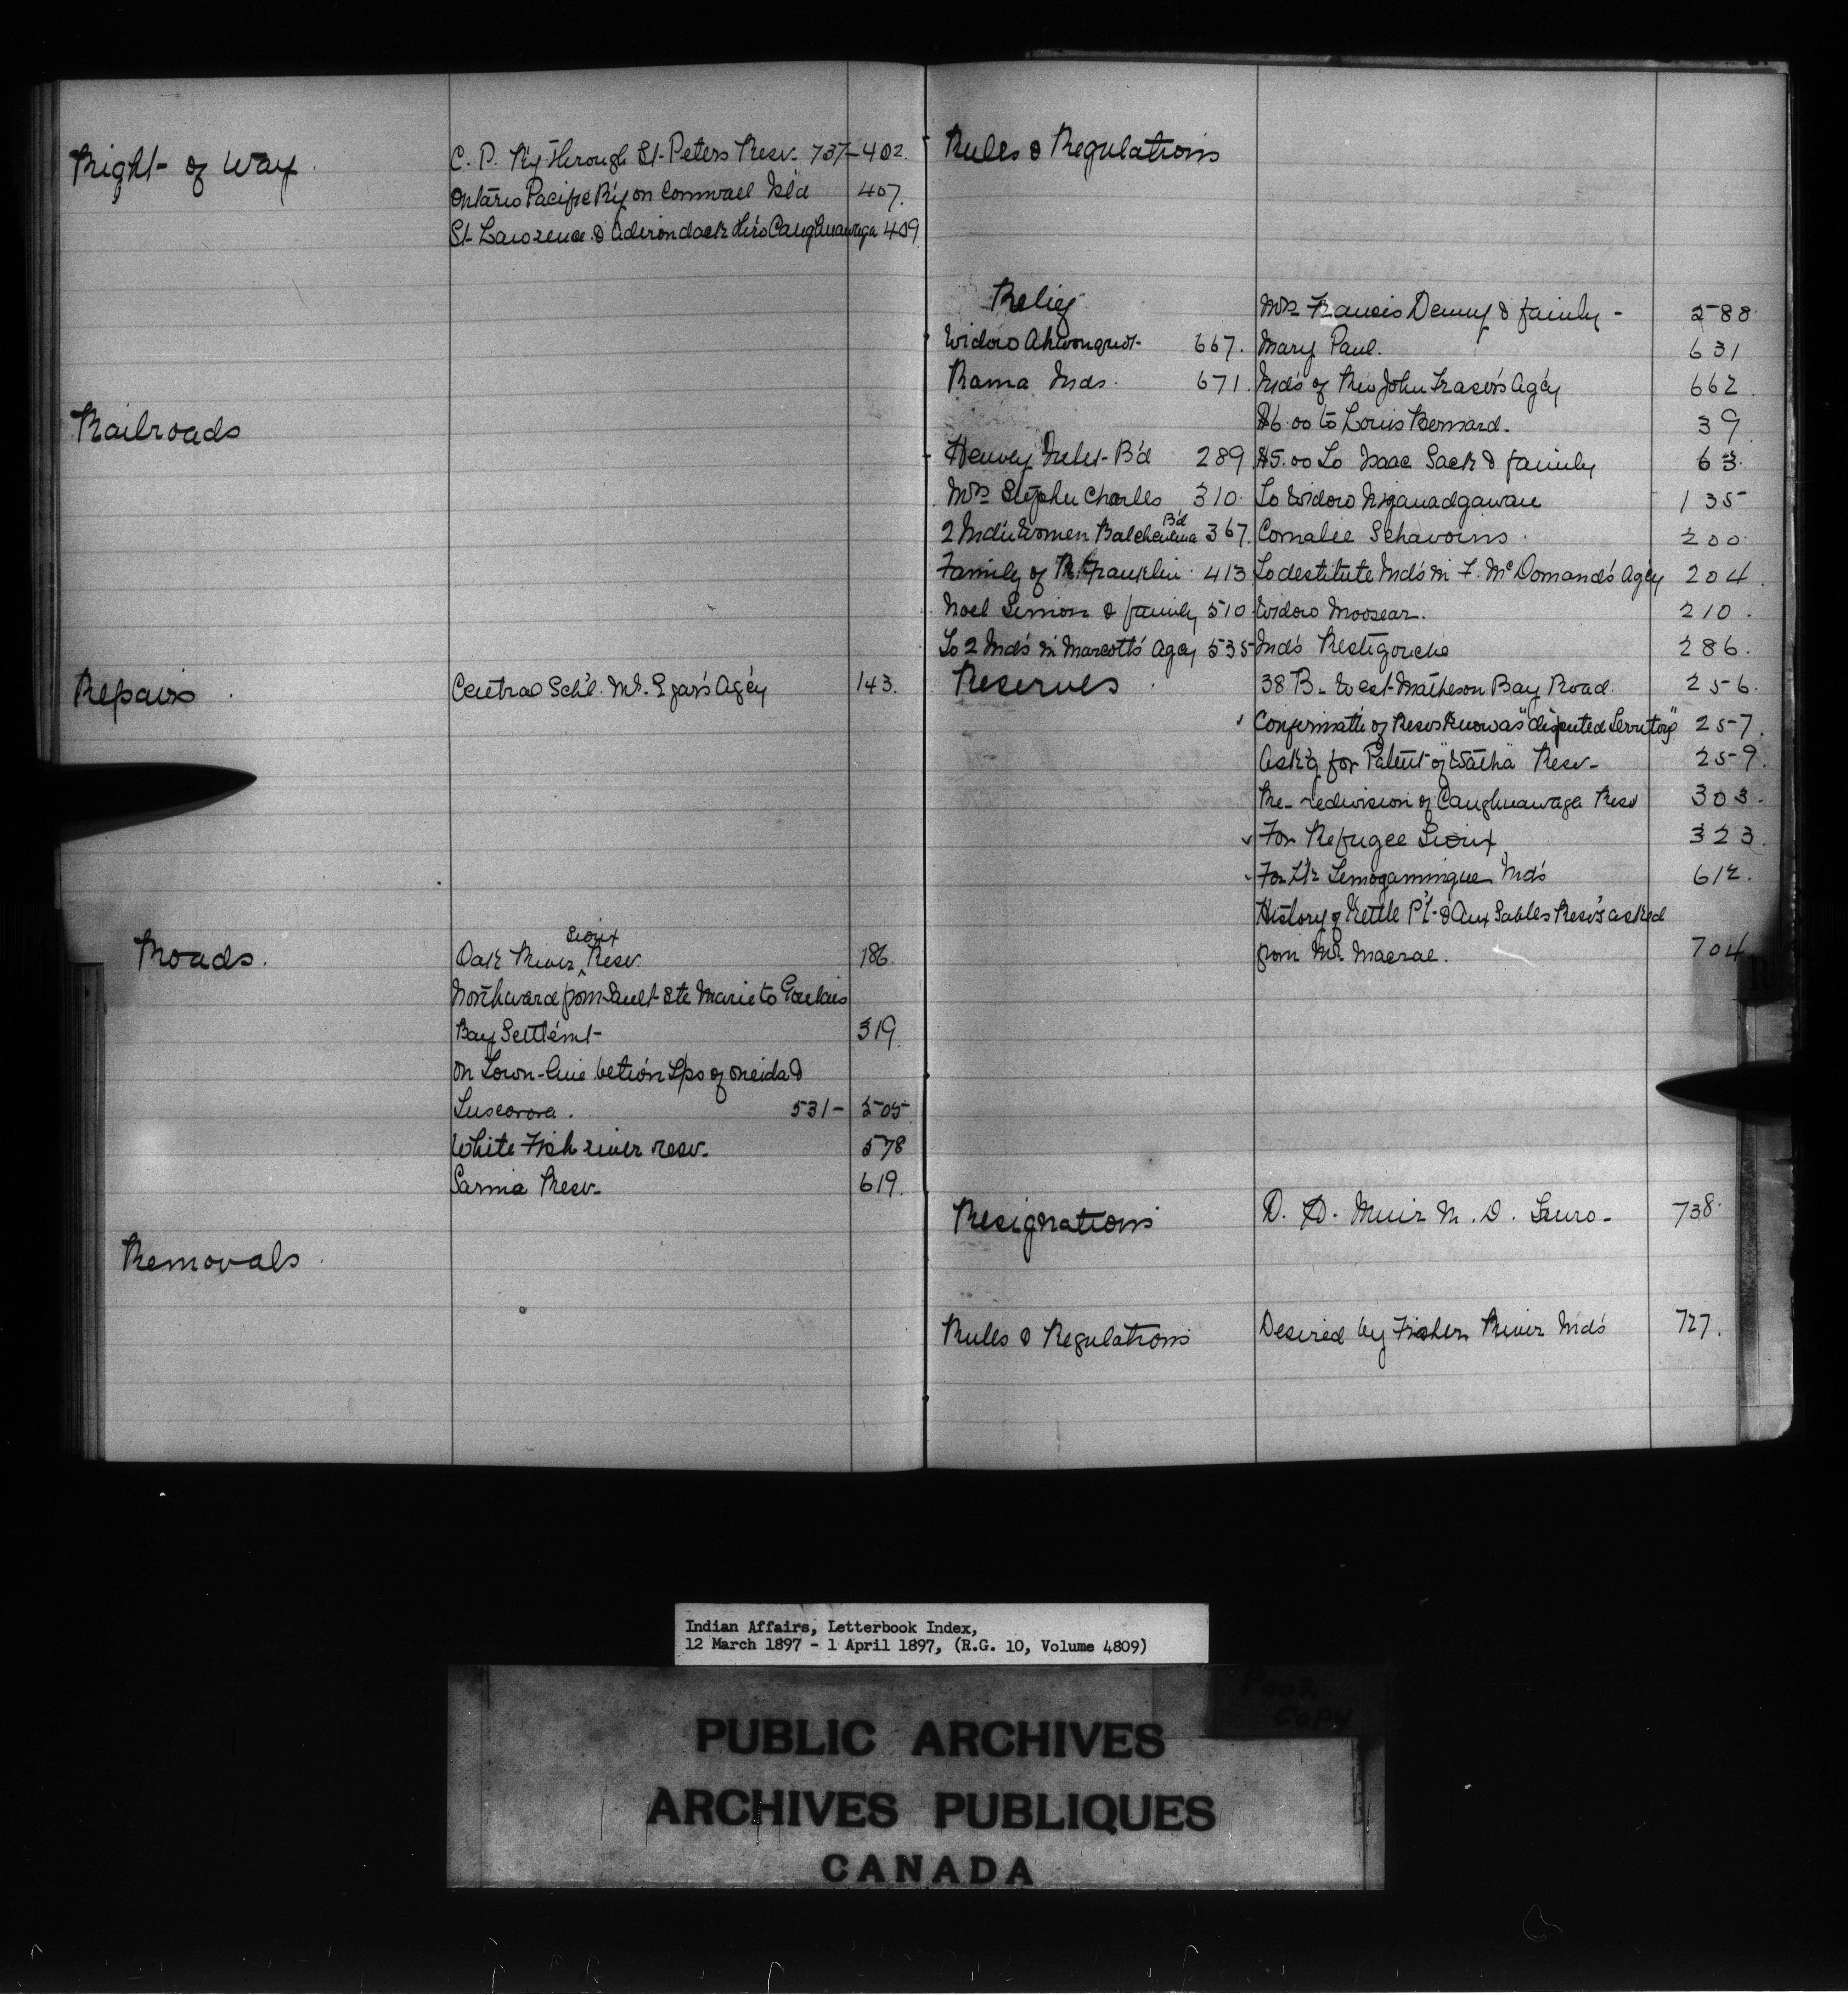 Right of Way
C. P. R'y through St. Peters Resv. 737- 402.
Ontario Pacific R'y on Cornwall Isl'd 407.
St. Lawrence & Adirondack thro Caughnawaga 409
Railroads
Repairs
Central Sch'l. Mr. Agcy 143.
Roads.
Sioux
Oak River Resv. 186.
Northward from Sault Ste Marie to Goulais
Bay Settlemt- 319.
On Town-line betw'n Tps of Oneida &
Tuscarora. 531- 505
White Fish river resv. 578
Sarnia Resv- 619.
Removals
Rules & Regulations
Relief Mrs Francis Denny & family - 588
Widow 667. Mary Paul. 631
Rama Inds. 671. Ind's of Rev John Fraser's Ag'cy 662.
$6.00 to Louis Bernard. 39.
Henvey Inlet B'd 289 $5.00 to Isaac Sack & family 63.
Mrs Stephen Charles 310. To Widow 135
B'd
2 Ind'n Women 367. 200
Family of Franklin 413 To destitute Ind's in F. McDomand's Ag'cy 204.
Noel Simon & family 510. Widow Moosear. 210.
To 2 Ind's in Marcott's Agcy 535 Ind's Restigouche 286.
Reserves 38 B. West Matheson Bay Road. 256.
Confirmat'n of Resvs known as "disputed Territory" 257.
Ask'g for Patent of "Watha" Resv- 259.
Re- redivision of Caughnawaga Resv 303.
For Refugee Sioux 323.
For Temogamingue Ind's 612.
History of Kettle P't- & Aux Sables Resv's asked
from Mr. Macrae. 704
Resignations D. D. Muir M. D. Truro- 738.
Rules & Regulations Desired by Fisher River Ind's 727.
Indian Affairs, Letterbook Index,
12 March 1897 - 1 April 1897, (R.G. 10, Volume 4809)
POOR
COPY
PUBLIC ARCHIVES
ARCHIVES PUBLIQUES
CANADA